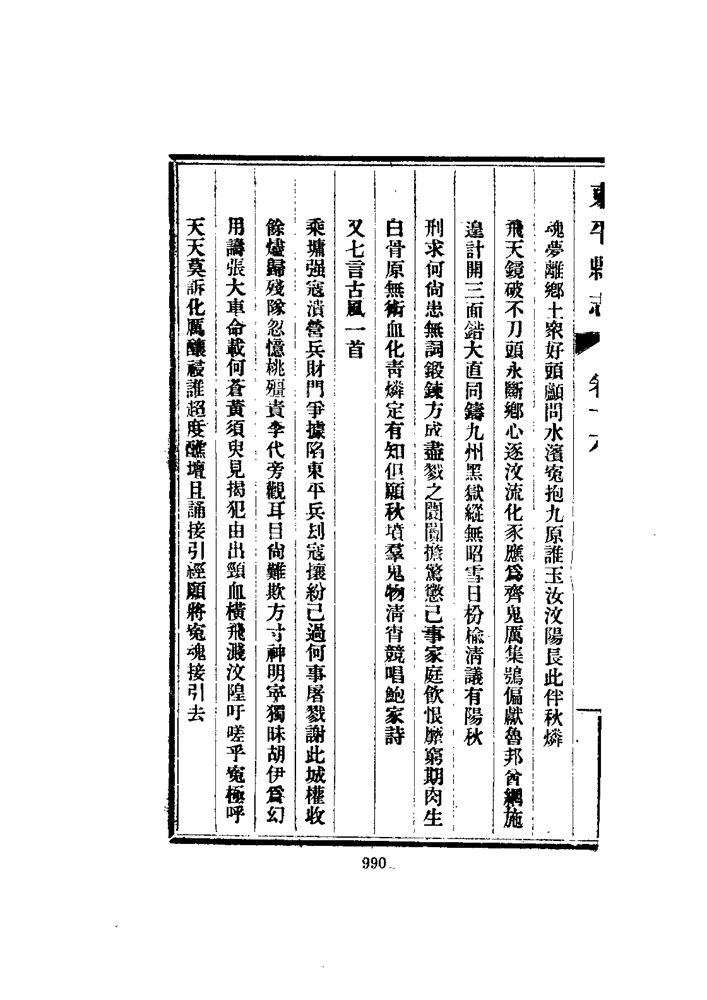 東平縣志　卷十六
魂夢離鄉土寃好頭顱問水濱寃抱九原誰玉汝汶陽長此伴秋燐
飛天鏡破不刀頭永斷鄉心逐汶流化豕應爲齊鬼厲集鴞偏獻魯邦會網施
遑計開三面錯大直同鑄九州黑獄縱無昭雪日枌楡淸議有陽秋
刑求何尙患無詞鍛鍊方成盡戮之闤闠擔驚懲已事家庭飮恨靡窮期肉生
白骨原無術血化靑燐定有知但願秋墳羣鬼物淸宵競唱鮑家詩
又七言古風一首
乘墉强寇潰營兵財門爭據陷東平兵刦寇攘紛已過何事屠戮謝此城權收
餘燼歸殘隊忽憶桃殭責李代旁觀耳目尙難欺方寸神明寧獨昧胡伊爲幻
用譸張大車命載何蒼黃須臾見揭犯由出頸血橫飛濺汶隍吁嗟乎寃極呼
天天莫訴化厲釀祲誰超度醮壇且誦接引經願將寃魂接引去
990